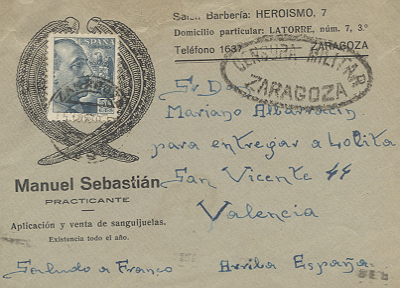 Salón Barbería: HEROISMO, 7
Domicilio particular: LATORRE, núm. 7, 3.º
Teléfono 1637 ZARAGOZA
CENSURA MILITAR
ZARAGOZA
ESPAÑA
ZARAGOZA
Sr. D
Mariano Albarracín
para entregar a Lolita
San Vicente 44
Valencia
Manuel Sebastián
PRACTICANTE
Aplicación y venta de sanguijuelas.
Existencia todo el año.
Saludo a Franco Arriba España